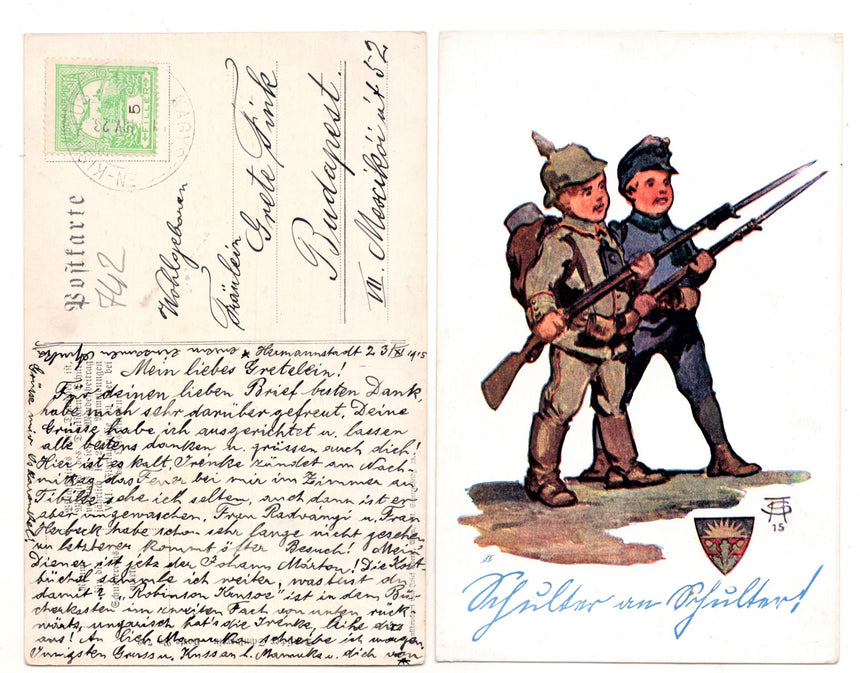 Postkarte
742
5
FILLÉR
Wohlgeboren
Fräulein
Grete Fink
Budapest.
VII. Mexikói út 52
* Hermannstadt 23/XI 1915
Mein liebes Gretelein!
Für deinen lieben Brief besten Dank,
habe mich sehr darüber gefreut. Deine
Grüsse habe ich ausgerichtet u. lassen
alle bestens danken u. grüssen auch dich!
Hier ist es kalt, Irenke zündet am Nach-
mittag das Feuer bei mir im Zimmer an,
sehe ich selten, auch dann ist er
aber ungewaschen. Frau Radványi u. Frau
Herbeck habe schon sehr lange nicht gesehen
zu letzterer kommt öfter Besuch! Mein
Diener ist jetz der Johann Márton! Die
sammle ich weiter, was tust du
damit? „Robinson Krusoe" ist in dem Bü-
cherkasten im zweiten Fach von unten rück-
wärts, ungarisch hat's die Irenke, leihe dir's
aus! An lieb Mamuka schreibe ich morgen
Innigsten Gruss u. Kuss an l. Mamuka u. dich von
Grüsse mir
15
Schulter an Schulter!